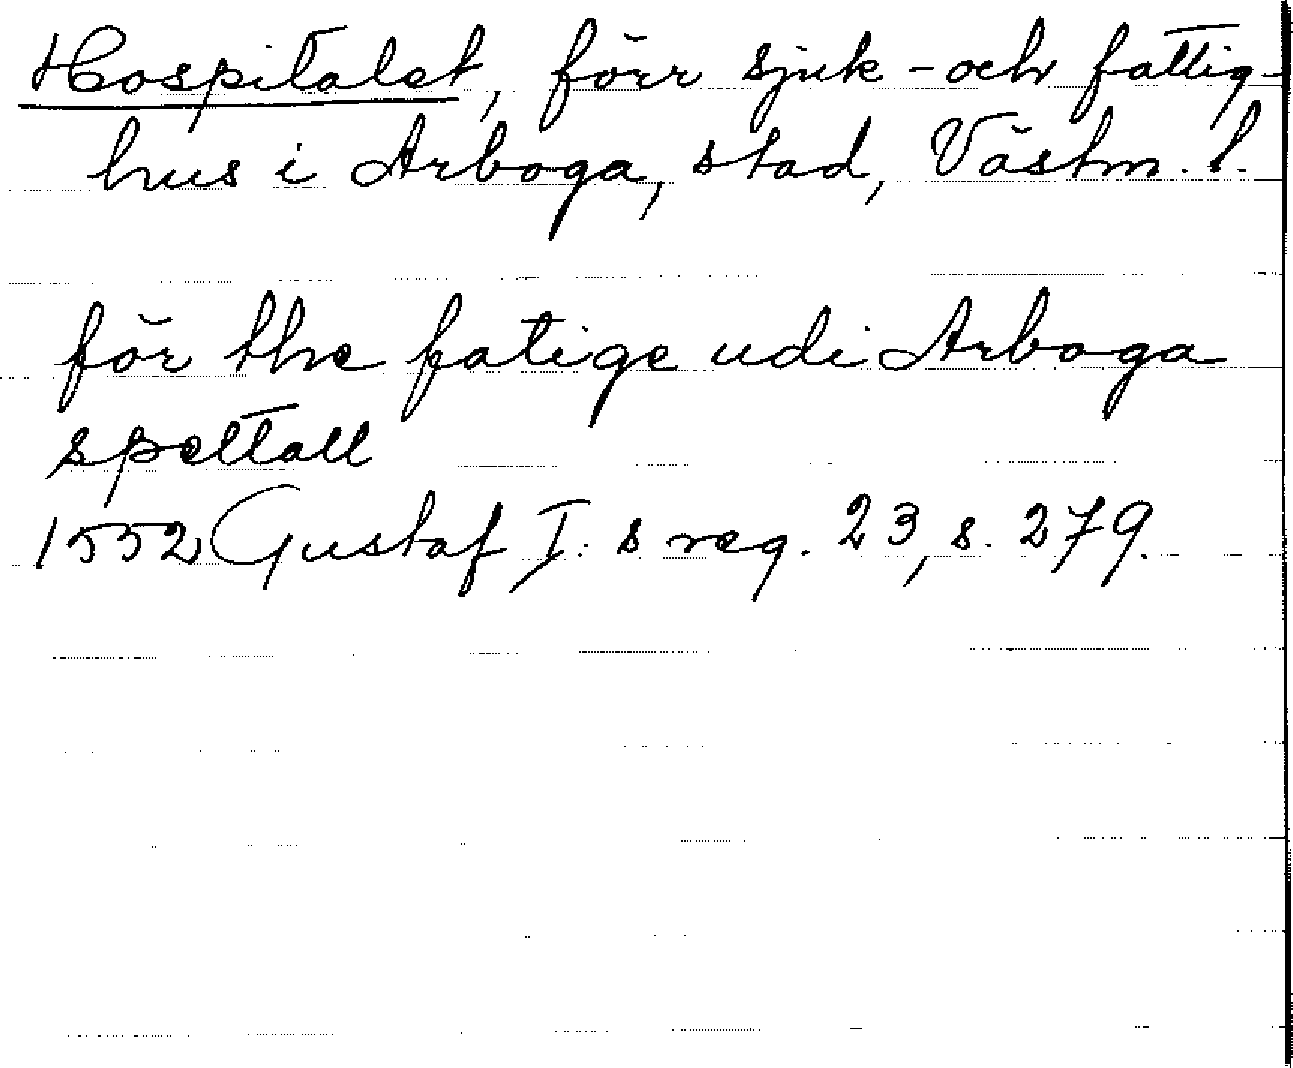 Hospitalet, förr sjuk- och fattig-
hus i Arboga, stad, Västm. l.
för the fatige udi Arboga
spettall
1552 Gustaf I:s reg. 23, s. 279.